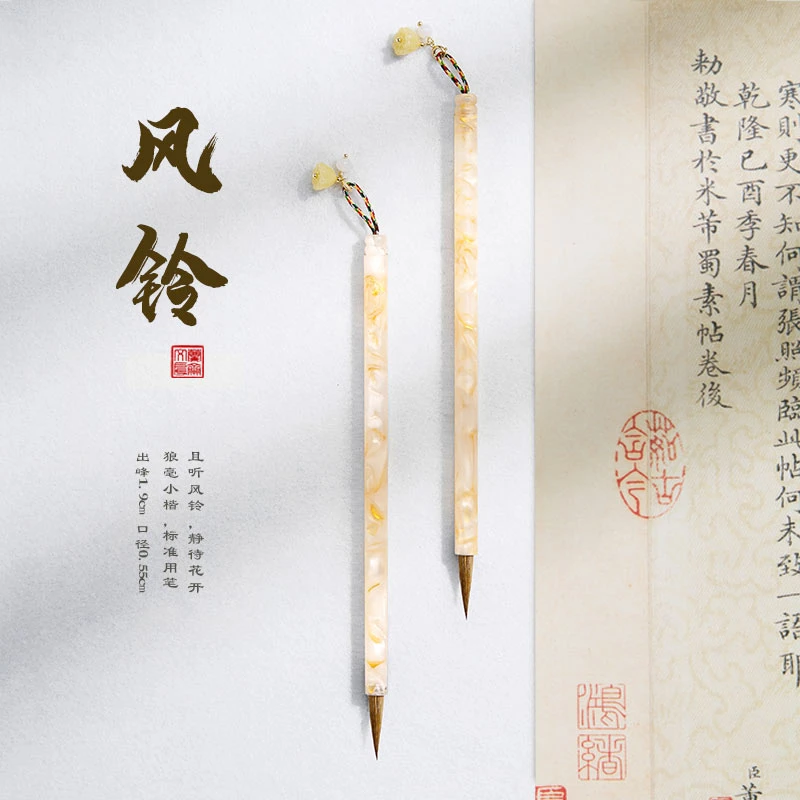 风铃
且听风铃，静待花开
狼毫小楷，标准用笔
出峰1.9cm 口径0.55cm
寒則更不知何謂張照頻臨此帖何未致一語耶
乾隆己酉季春月
勅敬書於米芾蜀素帖卷後
茹古含今
鴻緒
臣董